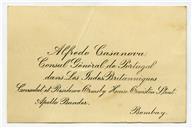 Alfredo Casanova
Consul Général de Portugal
dans Les Indes Britanniques
Consulat et Résidence Ormsby House Ormiston Street
Apollo Bunder.
Bombay.